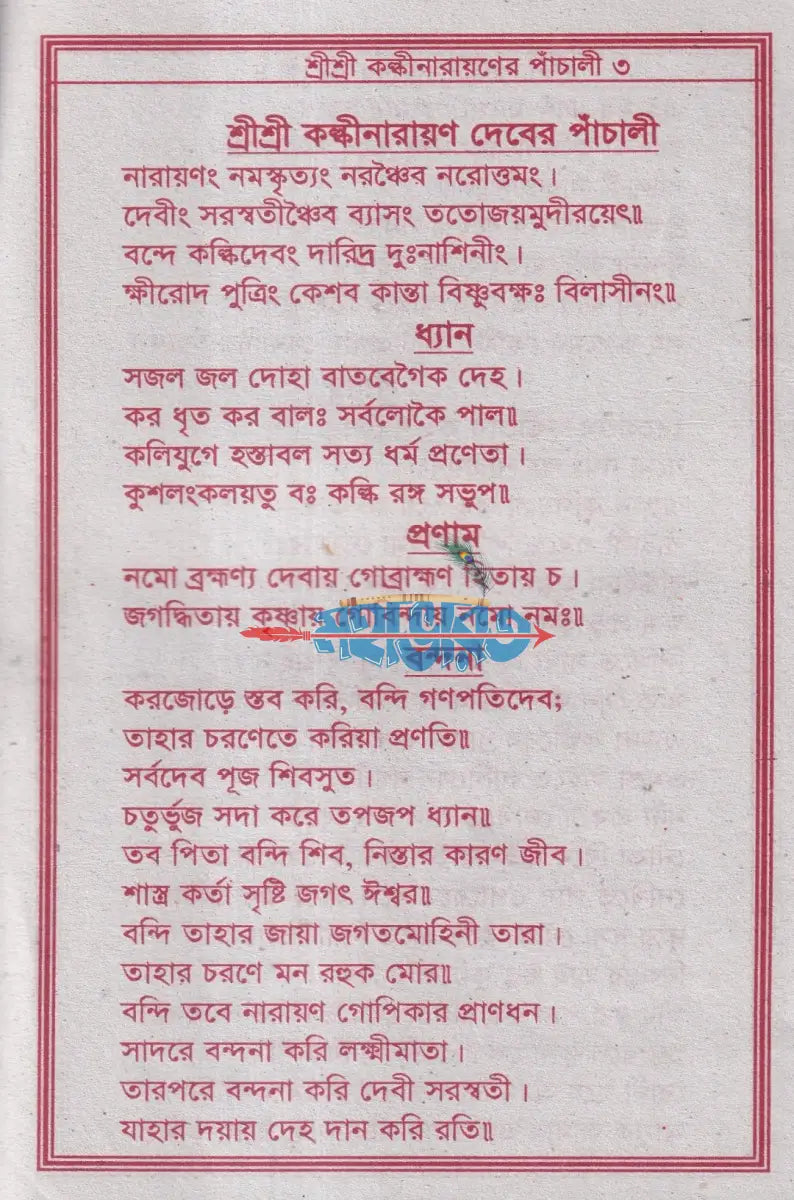 শ্রীশ্রী কল্কীনারায়ণের পাঁচালী ৩
শ্রীশ্রী কল্কীনারায়ণ দেবের পাঁচালী
নারায়ণং নমস্কৃত্যং নরঞ্চৈব নরোত্তমং।
দেবীং সরস্বতীঞ্চৈব ব্যাসং ততোজয়মুদীরয়েৎ॥
বন্দে কল্কিদেবং দারিদ্র দুঃনাশিনীং।
ক্ষীরোদ পুত্রিং কেশব কান্তা বিষ্ণুবক্ষঃ বিলাসীনং॥
ধ্যান
সজল জল দোহা বাতবেগৈক দেহ।
কর ধৃত কর বালঃ সর্বলোকৈ পাল॥
কলিযুগে হস্তাবল সত্য ধর্ম প্রণেতা।
কুশলংকলয়তু বঃ কল্কি রঙ্গ সভুপ॥
প্রণাম
নমো ব্রহ্মণ্য দেবায় গোব্রাহ্মণ হিতায় চ।
জগদ্ধিতায় কৃষ্ণায় গোবিন্দায় নমো নমঃ॥
মহাভারত
বন্দনা
করজোড়ে স্তব করি, বন্দি গণপতিদেব;
তাহার চরণেতে করিয়া প্রণতি॥
সর্বদেব পূজ শিবসুত।
চতুর্ভুজ সদা করে তপজপ ধ্যান॥
তব পিতা বন্দি শিব, নিস্তার কারণ জীব।
শাস্ত্র কর্তা সৃষ্টি জগৎ ঈশ্বর॥
বন্দি তাহার জায়া জগতমোহিনী তারা।
তাহার চরণে মন রহুক মোর॥
বন্দি তবে নারায়ণ গোপিকার প্রাণধন।
সাদরে বন্দনা করি লক্ষ্মীমাতা।
তারপরে বন্দনা করি দেবী সরস্বতী।
যাহার দয়ায় দেহ দান করি রতি॥